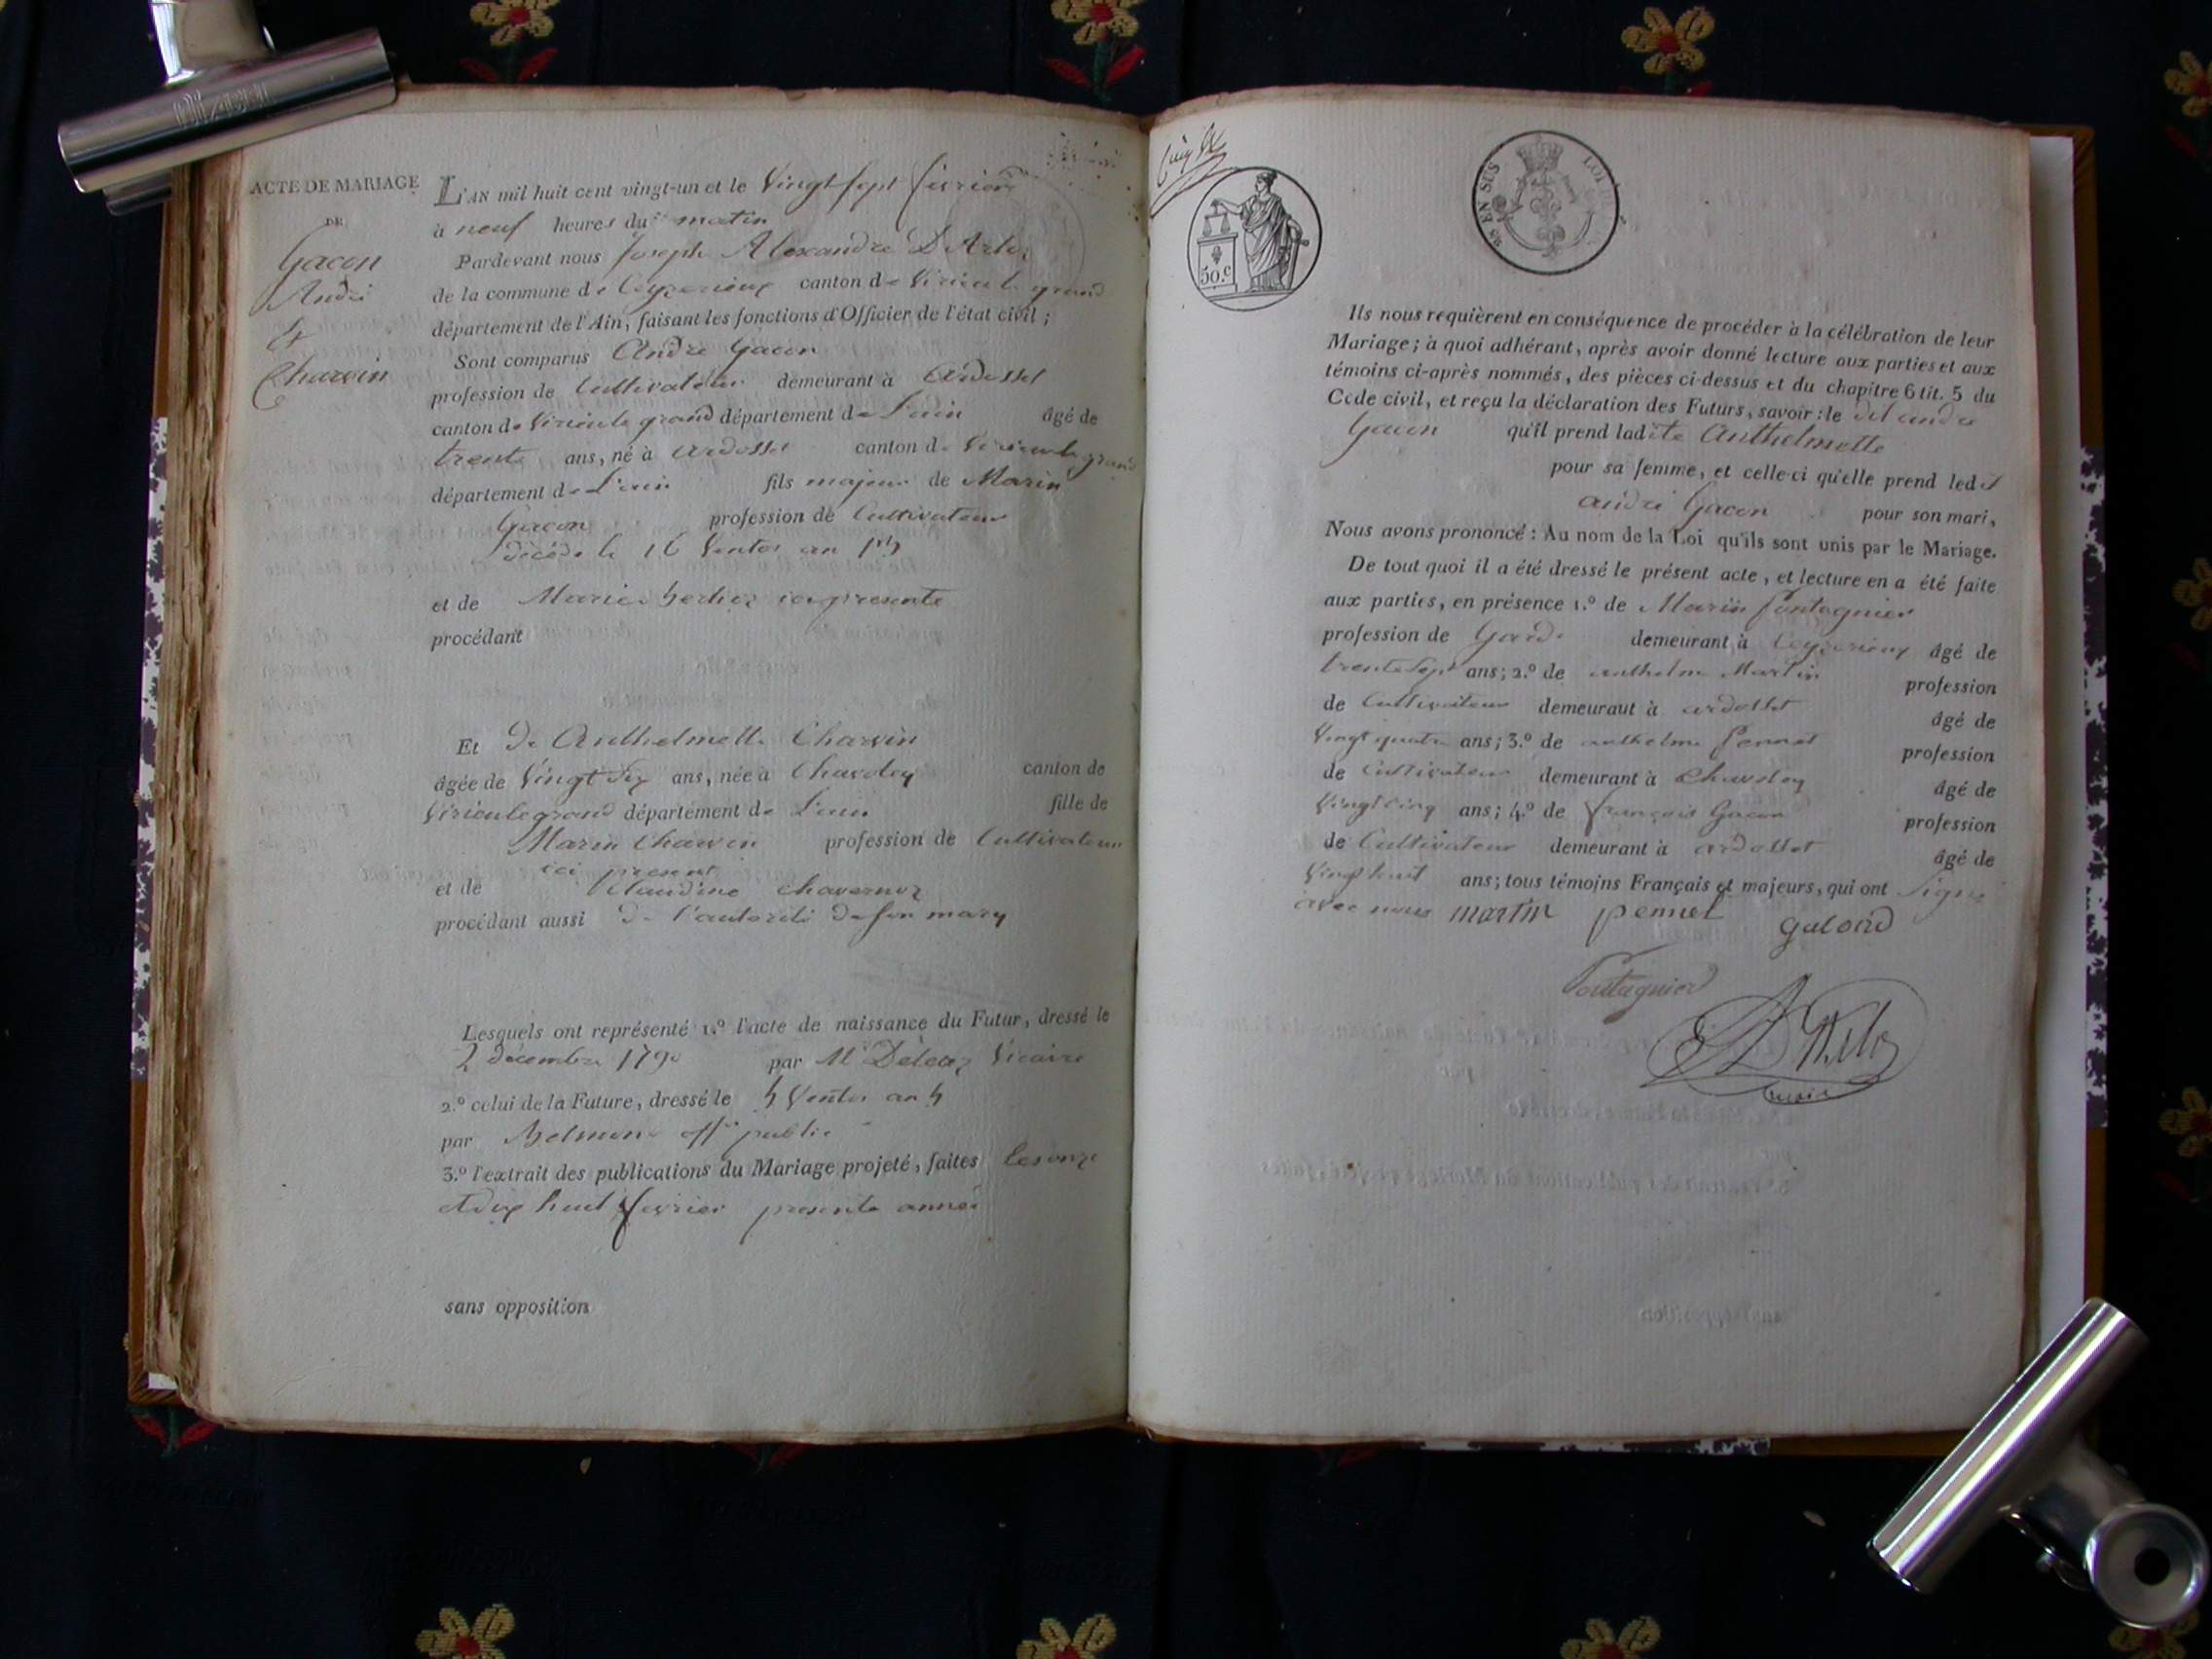 ACTE DE MARIAGE
DE
Gacon
André
&
Charvin
L'AN mil huit cent vingt-un et le Vingt sept fevrier
à neuf heures du matin
Pardevant nous Joseph Alexandre D'Arloz
de la commune de Ceyzerieux canton de Virieu le grand
département de l'Ain, faisant les fonctions d'Officier de l'état civil ;
Sont comparus André Gacon
profession de Cultivateur demeurant à Ardosset
canton de Virieu le grand département de L'ain âgé de
trente ans, né à ardosset canton de Virieu le grand
département de L'ain fils majeur de Marin
Gacon profession de Cultivateur
décédé le 16 Ventos an
et de Marie ici presente
procédant
Et De Anthelmette Charvin
âgée de Vingt six ans, née à Chavoley canton de
Virieu le grand département de L'ain fille de
Marin Charvin profession de Cultivateur
ici present
et de Claudine Chavernoz
procédant aussi De l'autorité De son mary
Lesquels ont représenté 1.° l'acte de naissance du Futur, dressé le
2 décembre 1790 par Mr Vicaire
2.° celui de la Future, dressé le 4 Ventos an 4
par off. public
3.° l'extrait des publications du Mariage projeté, faites les onze
et dix huit fevrier presente année
sans opposition
50.c
25 EN SUS LOI
Ils nous requièrent en conséquence de procéder à la célébration de leur
Mariage ; à quoi adhérant, après avoir donné lecture aux parties et aux
témoins ci-après nommés, des pièces ci-dessus et du chapitre 6 tit. 5 du
Code civil, et reçu la déclaration des Futurs, savoir : le dit andré
Gacon qu'il prend ladite Anthelmette
pour sa femme, et celle-ci qu'elle prend ledit
andré Gacon pour son mari,
Nous avons prononcé : Au nom de la Loi qu'ils sont unis par le Mariage.
De tout quoi il a été dressé le présent acte, et lecture en a été faite
aux parties, en présence 1.° de Marin Pontagnier
profession de Garde demeurant à Ceyzerieux âgé de
trente sept ans ; 2.° de anthelme Martin profession
de Cultivateur demeurant à ardosset âgé de
Vingt quatre ans ; 3.° de anthelme Pennet profession
de Cultivateur demeurant à Chavoley âgé de
Vingt cinq ans ; 4.° de françois Gacon profession
de Cultivateur demeurant à ardosset âgé de
Vingt huit ans ; tous témoins Français et majeurs, qui ont signé
avec nous martin pennet
Pontagnier